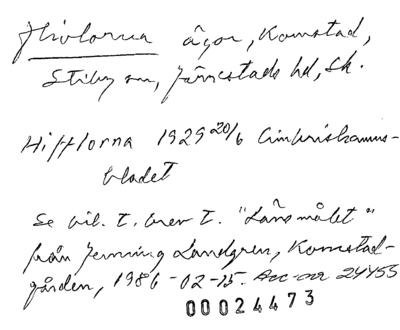 Hivlorna ägor, Komstad,
Stiby sn, Järrestads hd, Sk.
Hifflorna 1929 20/6 Cimbrishamns-
bladet
Se bil. t. brev t. "Länsmålet"
från Henning Landgren, Komstad-
gården, 1986-02-15. Acc nr 24453
00024473